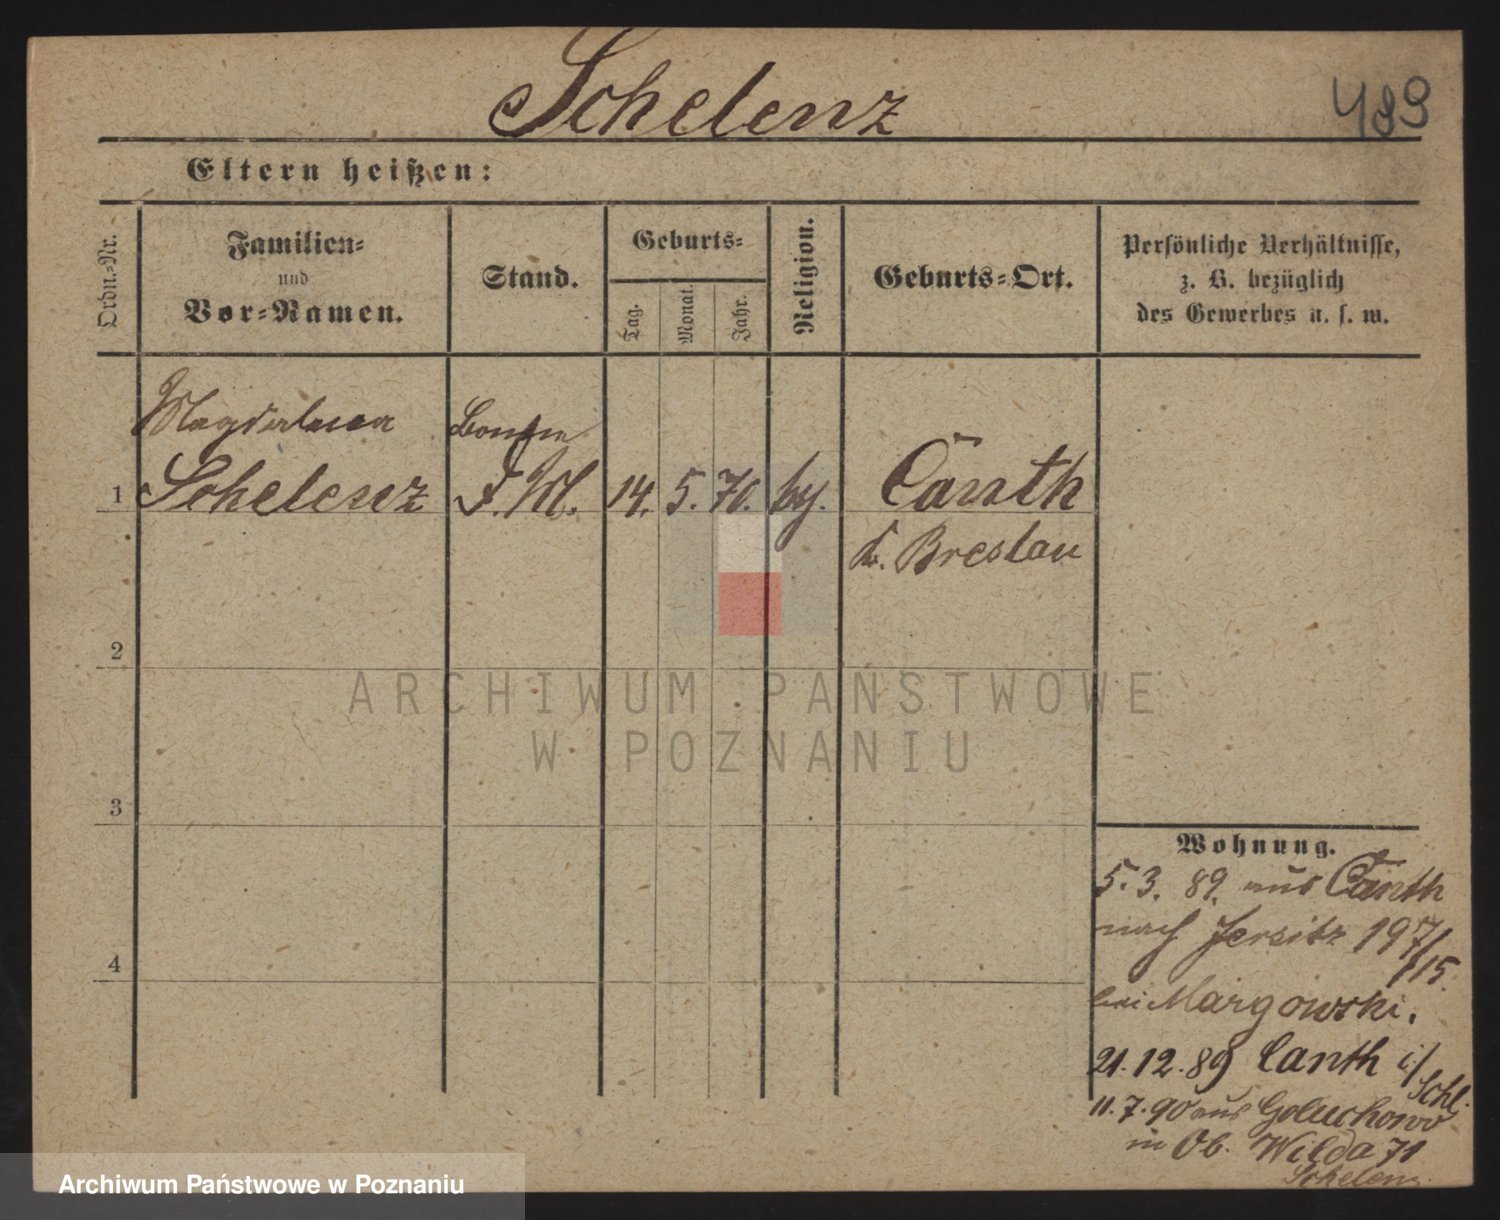 Schelenz
489
Eltern heißen:
Ordn.-Nr.
Familien-
und
Vor-Namen.
Stand.
Geburts-
Tag.
Monat.
Jahr.
Religion.
Geburts-Ort.
Persönliche Verhältnisse,
z. B. bezüglich
des Gewerbes u. s. w.
Magdalena
Bonne
1 Schelenz F. M. 14. 5. 70. Canth
Kr. Breslau
2
3
4
ARCHIWUM PAŃSTWOWE
W POZNANIU
Wohnung.
5. 3. 89. aus Canth
nach Jersitz 197/15.
bei Margowski.
21.12.89 Canth i/Schl.
11.7.90 aus Goluchowo
in Ob. Wilda 71
Schelenz
Archiwum Państwowe w Poznaniu